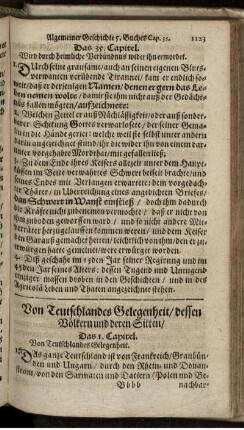 Allgemeiner Geschicht 5. Buches Cap. 35. 1123
Das 35. Capitel.
Wird durch heimliche Verbündnus wider ihn ermordet.
Durch seine grausame/ auch an seinen eigenen Bluts-
verwanten verübende Tiranneï/ kam er endlich so-
weit/ daß er derjenigen Namen/ denen er gern das Le-
ben nemen wolte/ damit sie ihm nicht aus der Gedächt-
nüs fallen mögten/ aufzeichnete:
2. Welchen Zettel er auß Nachlässigkeit/ oder auß sonder-
barer Schickung Gottes verwarlosete/ der seiner Gema-
lin in die Hände geriet/ welche weil sie selbst unter andern
darin angezeichnet stund/ ihr mit den ihren von einem dar-
über vorgehabte Mordthat/ mit gefallen ließ:
3. Zu dem Ende ihres Kellers allezeit unter dem Haupt-
küssen im Bette verwahrtes Schwert beiseit brachte/ und
ihres Endes mit Verlangen erwartete: dem vorgedach-
ter Thäter/ in Überreichung eines angedichten Brieses/
das Schwert in Wanst einstieß / doch ihm dadurch
die Kräfte nicht zubenemen vermochte/ daß er nicht von
ihm zu boden geworffen war / und so nicht andere Mit-
verräter herzugelauffen kommen weren/ und dem Keiser
den Garauß gemacht hetten/
4. Diß geschahe im 15den Jar seiner Regirung und im
45den Jar seines Alters: dessen Tugend und Untugend
Tacitus
Agricola Leben und Thaten angezeichnet stehen.
Von Teutschlandes Gelegenheit/ dessen
Völkern und deren Sitten/
Das 1. Capitel.
Von Teutschlandes Gelegenheit.
Das ganze Teutschland ist von Frankreich/ Graubün-
den und Ungarn/ durch den Rhein- und Donau-
strom/ von den Sarmaten und Datiern/ Polen und Be-
Bbbb nachbar-